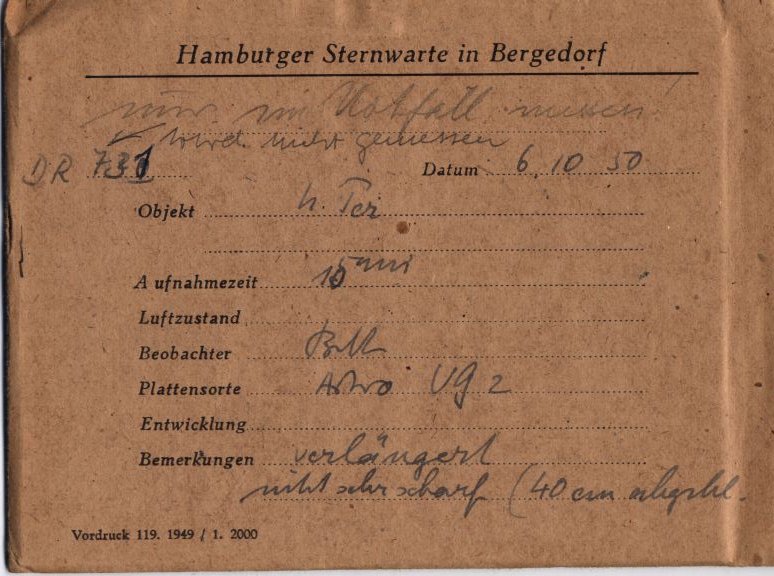 Hamburger Sternwarte in Bergedorf
nur im Notfall messen!
wird nicht gemessen
DR 731 Datum 6. 10 50
Objekt h. Per
Aufnahmezeit
Luftzustand
Beobachter
Plattensorte Astro UG 2
Entwicklung
Bemerkungen verlängert
nicht sehr scharf (40 cm
Vordruck 119. 1949 / 1. 2000